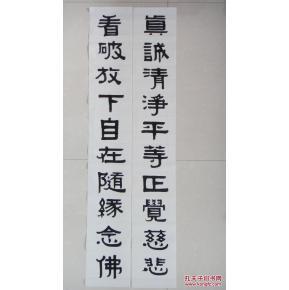 真誠清淨平等正覺慈悲
看破放下自在隨緣念佛
孔夫子旧书网